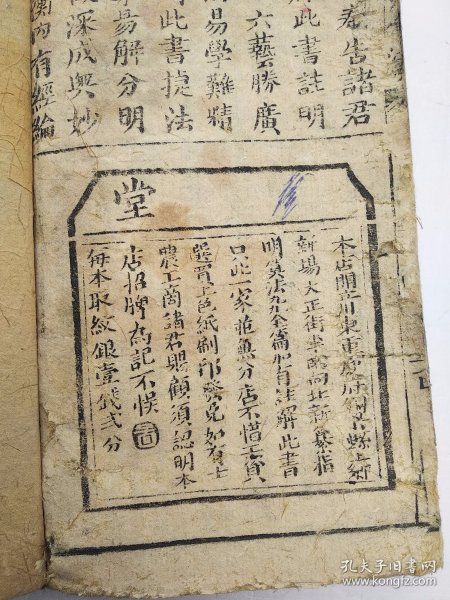 奉告諸君
此書註明
六藝勝廣
易學難精
此書捷法
易解分明
深成奥妙
内有經綸
堂
本店開立川東重慶府銅
新場大正街坐南向北新纂指
明算法九全篇加有註解此書
只此一家並無分店不惜工資
選買上色紙刷印發兌如有士
農工商諸君賜顧須認明本
店招牌為記不悮
每本取紋銀壹錢弍分
孔夫子旧书网
www.kongfz.com